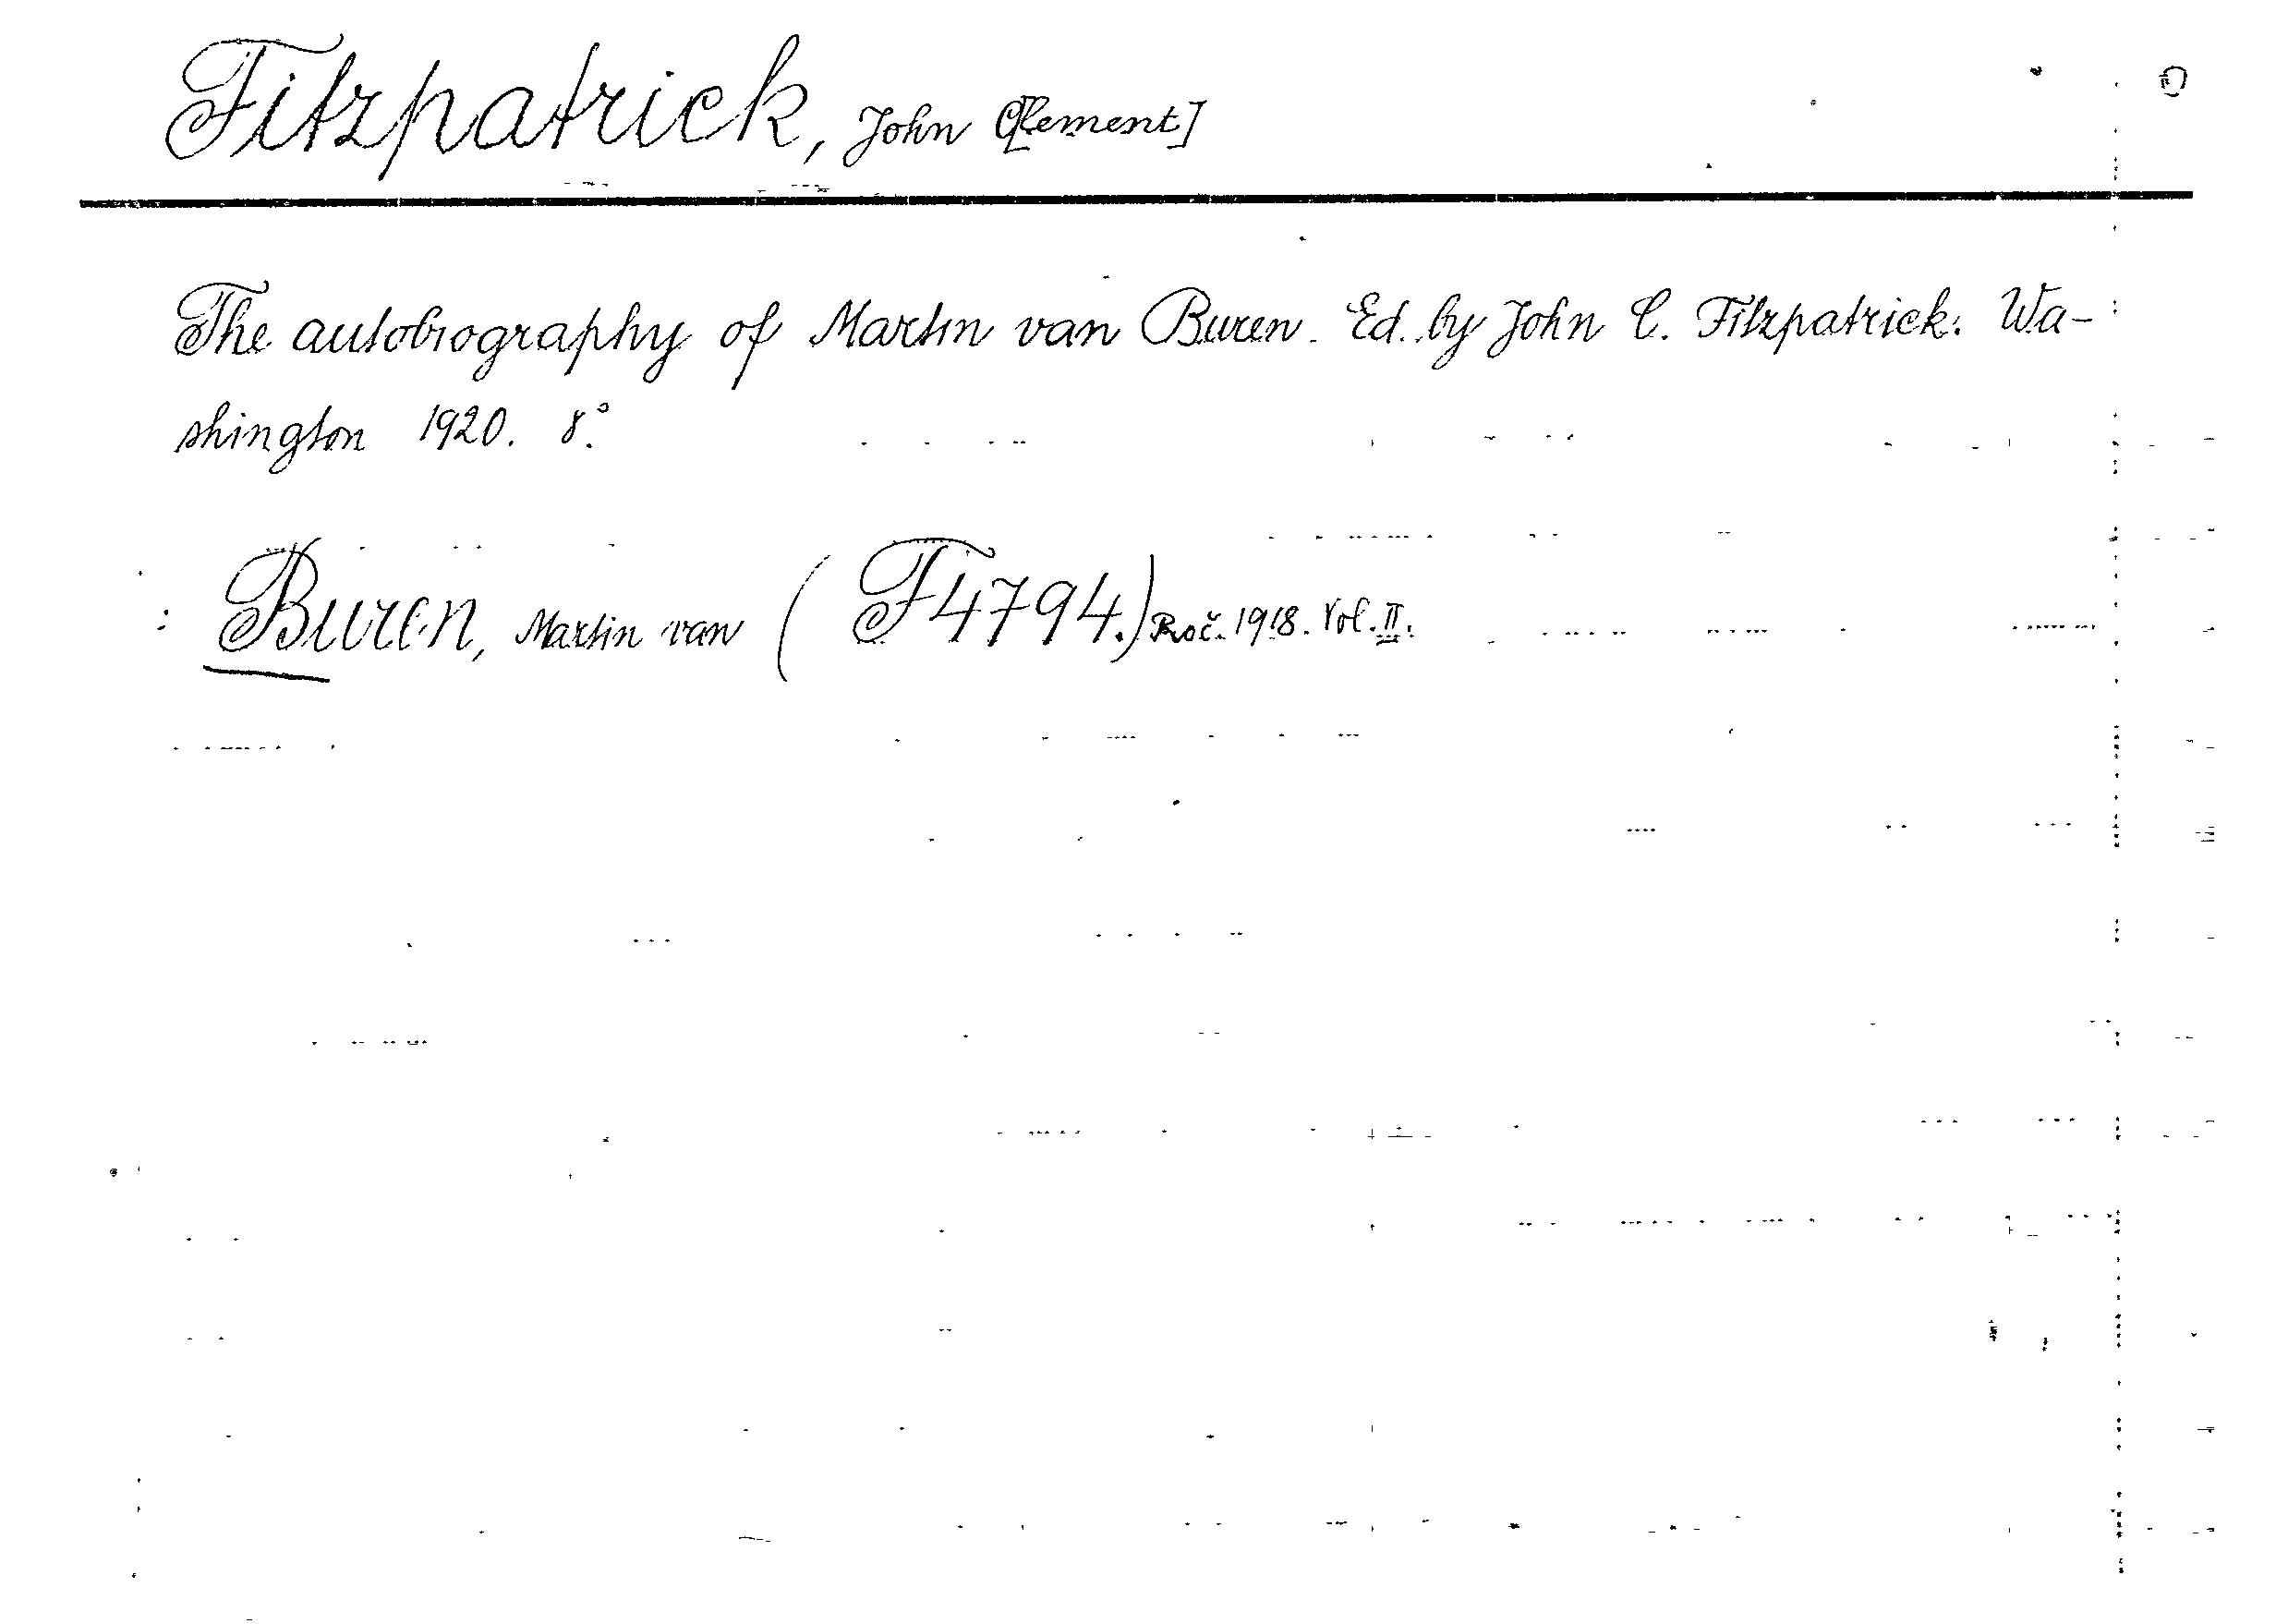 Fitzpatrick, John C[lement]
The autobiography of Martin van Buren. Ed. by John C. Fitzpatrick. Wa-
shington 1920. 8.°
: Buren, Martin van (F4794.) Roč. 1918. Vol. II.